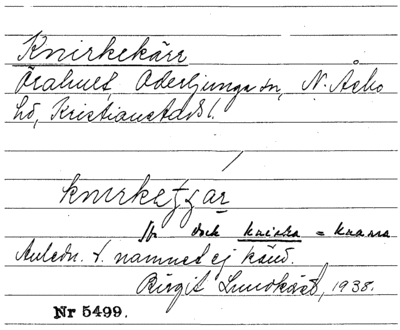 Knirkekärr
Örahult, Oderljunga sn, N. Åsbo
hd, Kristianstads l.
jfr dock knirka = knarra
Anledn. t. namnet ej känd.
Birgit Lundkvist, 1938.
Nr 5499.